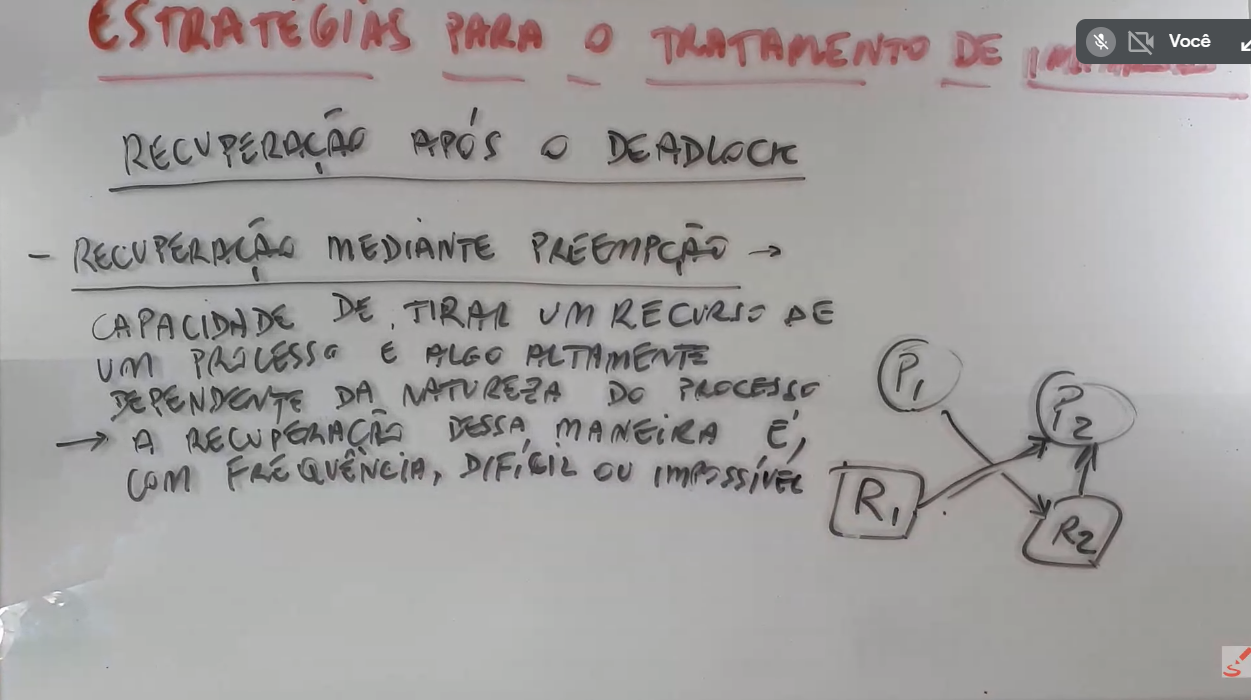 ESTRATÉGIAS PARA O TRATAMENTO DE
Você
RECUPERAÇÃO APÓS O DEADLOCK
- RECUPERAÇÃO MEDIANTE PREEMPÇÃO →
CAPACIDADE DE TIRAR UM RECURSO DE
UM PROCESSO E ALGO ALTAMENTE
DEPENDENTE DA NATUREZA DO PROCESSO
→ A RECUPERAÇÃO DESSA MANEIRA É,
COM FREQUÊNCIA, DIFÍCIL OU IMPOSSÍVEL
P1
P2
R1
R2
S